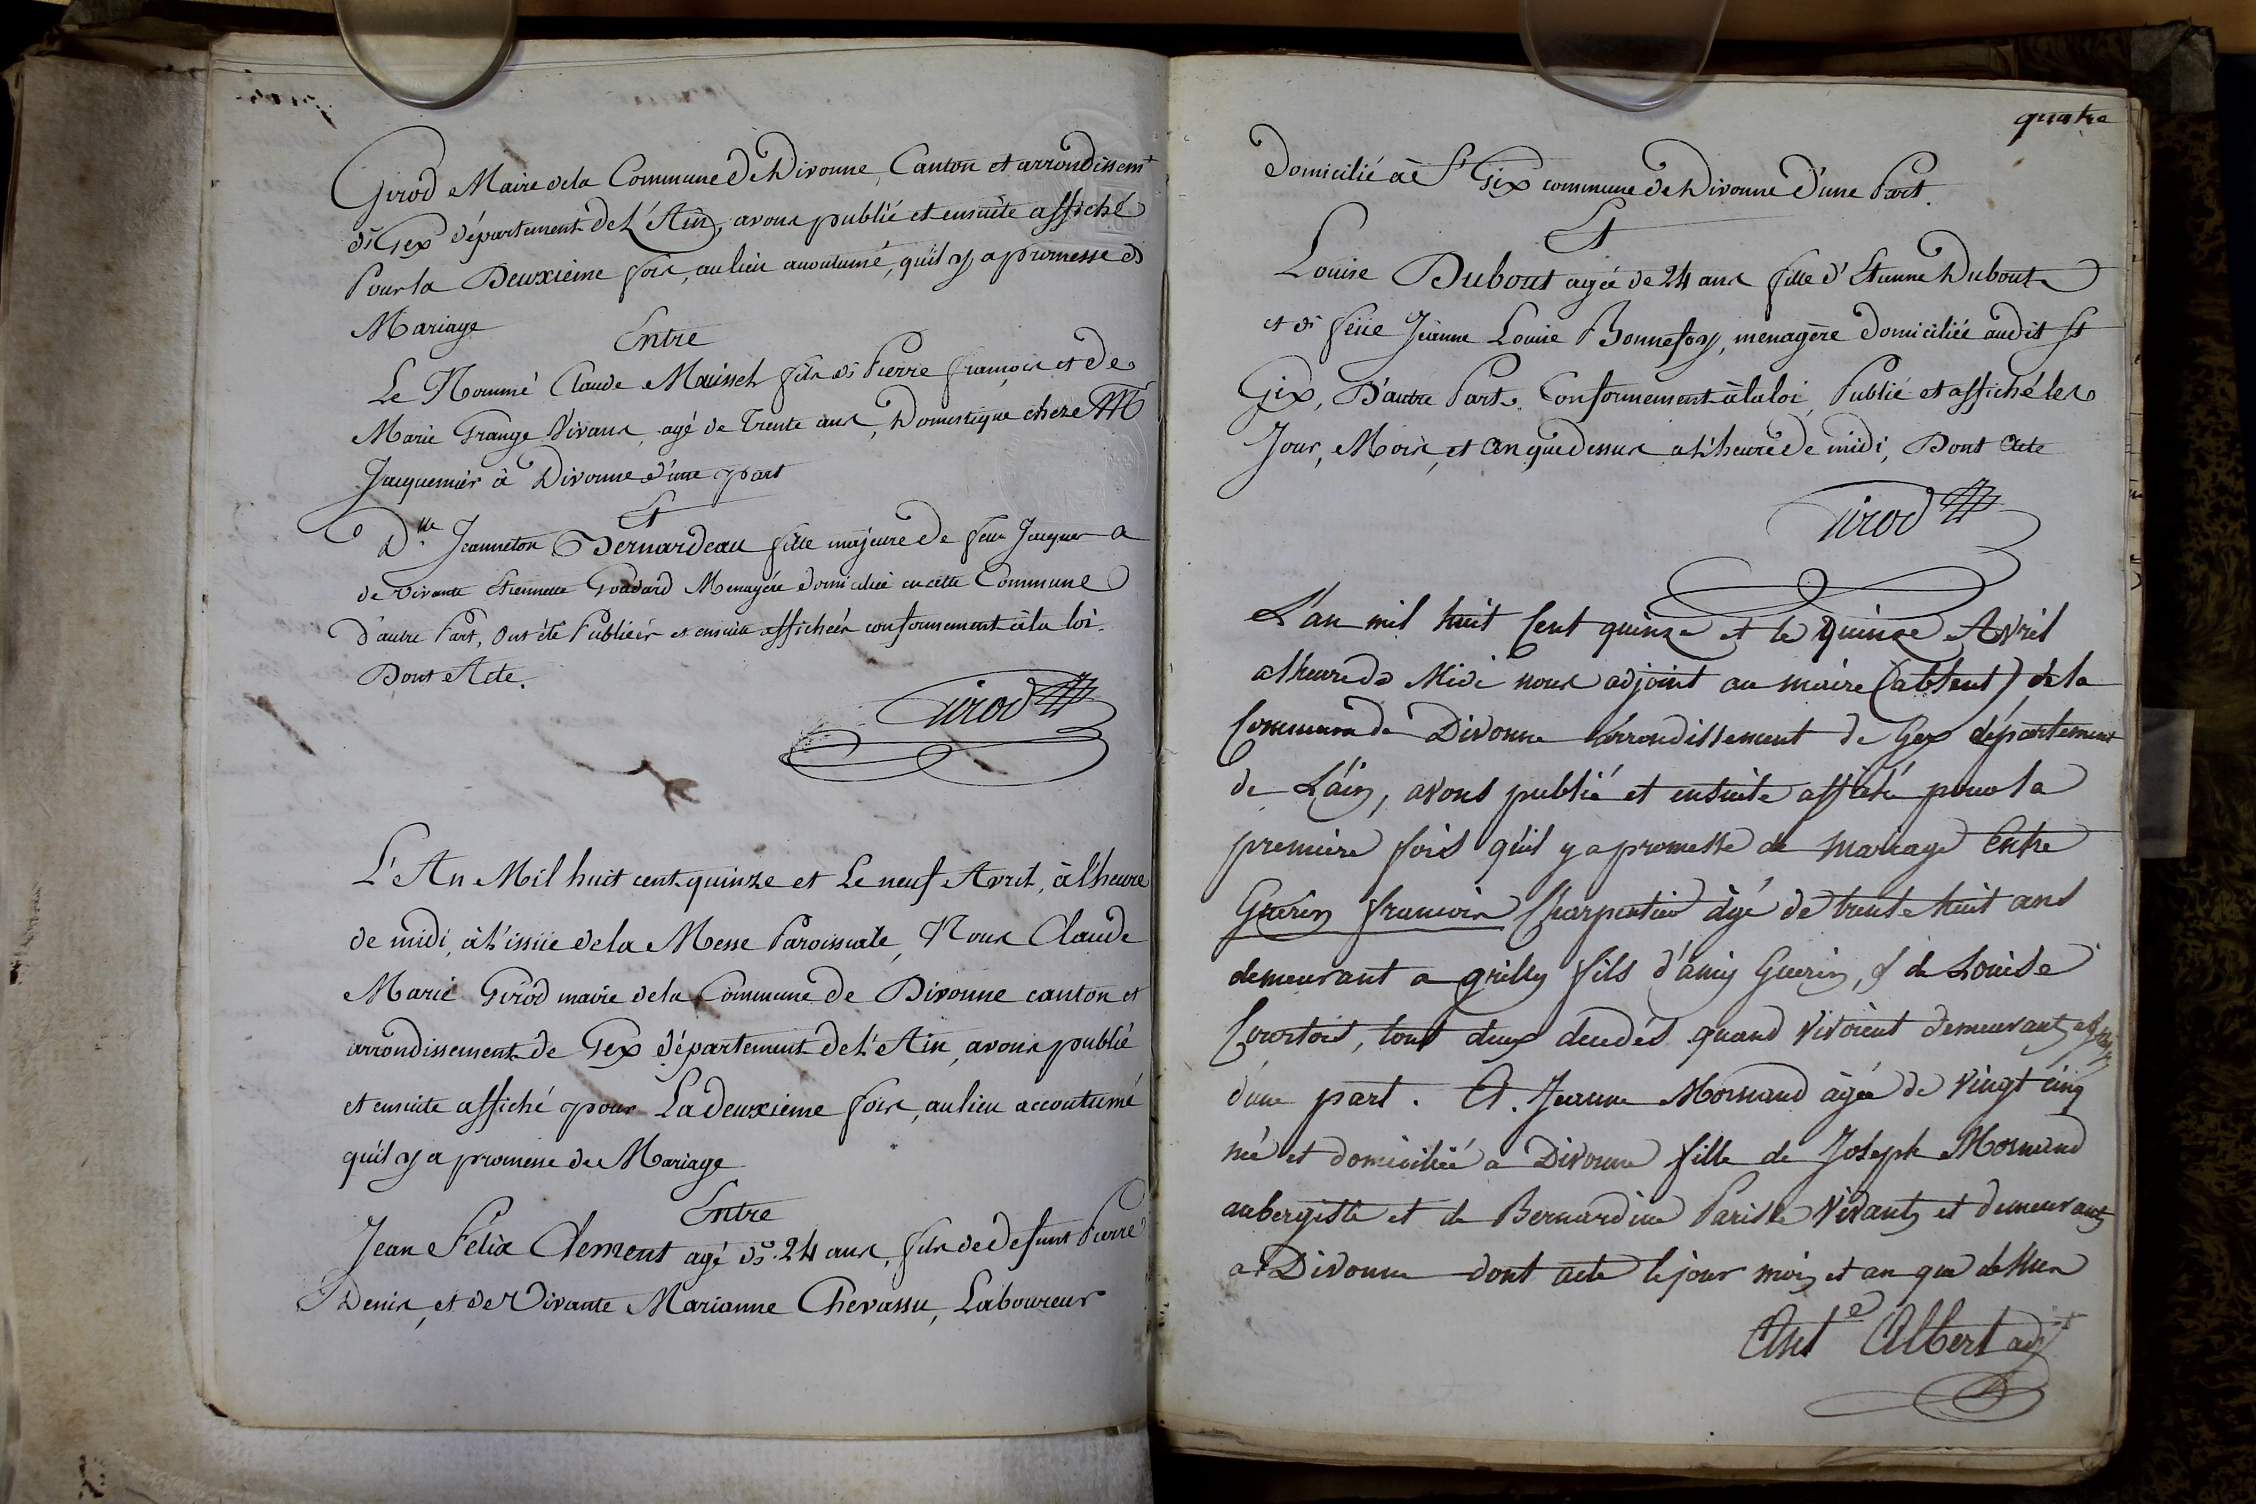 Girod Maire de la Commune de Divonne, Canton et arrondissemt
de Gex département de L'Ain, avons publié et ensuite affiché
Pour la Deuxième fois, au lieu accoutumé, qu'il y a promesse de
Mariage
Entre
Le Nommé Claude Maissel fils de Pierre françois et de
Marie Grange Vivans, agé de Trente ans, Domestique chez M
Jacquemier à Divonne d'une part
Et
Dlle Jeanneton Bernardeau fille majeure de feu Jacques
de vivante Etiennette Goddard Menagére domiciliée en cette Commune
d'autre Part, Ont été Publiées et ensuite affichées conformement à la loi.
Dont Acte.
Girod
L'An Mil huit cent quinze et Le neuf Avril, à l'heure
de midi, à l'issüe de la Messe Paroissiale, Nous Claude
Marie Girod maire de la Commune de Divonne canton et
arrondissement de Gex département de L'Ain, avons publié
et ensuite affiché pour La deuxième fois, au lieu accoutumé
qu'il y a promesse de Mariage
Entre
Jean Félix Clement agé de 24 ans, fils de defunt Pierre
Denis, et de Vivante Marianne Chevassu, Laboureur
quatre
Domicilié à St Gix commune de Divonne D'une Part.
Et
Louise Dubout agée de 24 ans fille d'Etienne Dubout
et de feüe Jeanne Louise Bonnefoy, menagère domiciliée audit St
Gix, D'autre Part. Conformement à la loi, Publié et affiché les
Jour, Mois, et An que dessus a L'heure de midi, Dont Acte
Girod
L'an mil huit Cent quinze et le Quinze Avril
a l'heure de Midi nous adjoint au maire (absent) de la
Commune de Divonne Arrondissement de Gex département
de L'ain, avons publié et ensuite affiché pour la
première fois qu'il y a promesse de mariage Entre
Guerin francois Charpentier âgé de trente huit ans
demeurant a grilly fils d'amy Guerin, & de Louise
Courtois, tous deux decedés quand vivoient demeurants
d'une part. Et. Jeanne Mornand âgée de Vingt cinq
née et domiciliée a Divonne fille de Joseph Mornand
aubergiste et de Bernardine Parisse Vivants et demeurants
a Divonne dont acte le jour mois et an que dessus
Ante Albert adjt